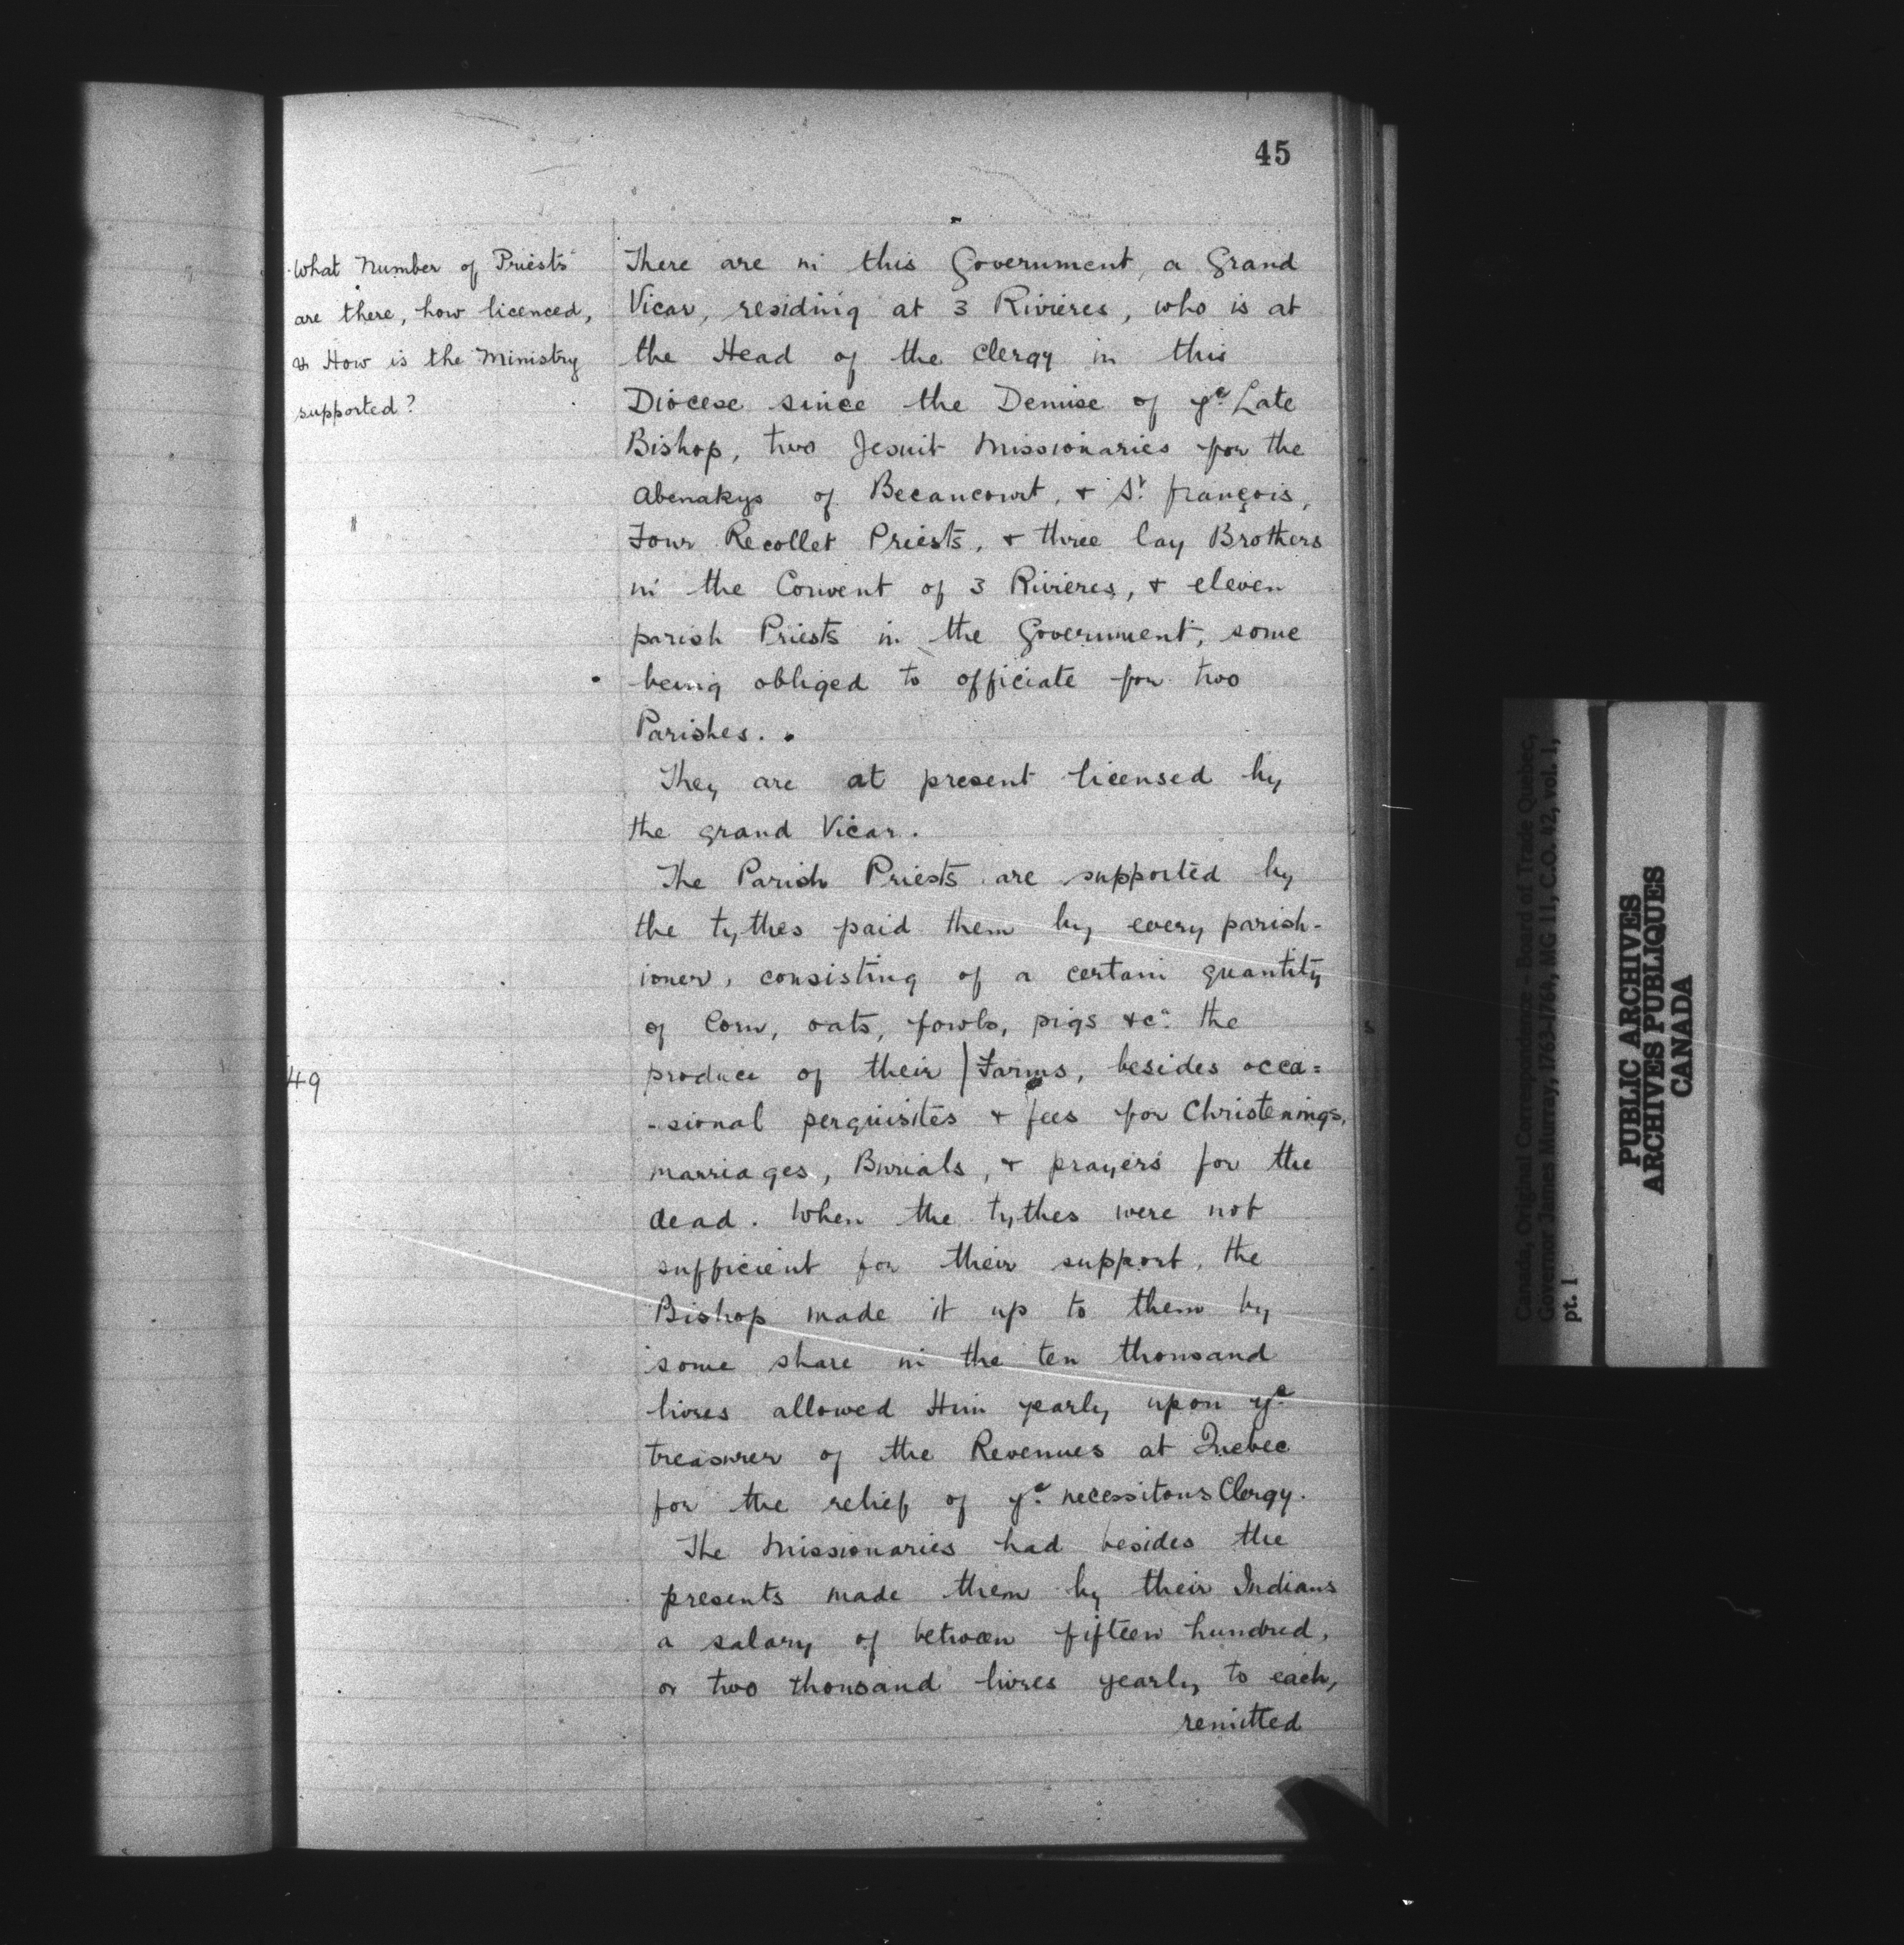 45
What Number of Priests
are there, how licenced,
& How is the Ministry
supported?
There are in this Government, a Grand
Vicar, residing at 3 Rivieres, who is at
the Head of the Clergy in this
Diocese since the Demise of yᵉ Late
Bishop, two Jesuit Missionaries for the
Abenakys of Becancourt, & Sᵗ françois,
Four Recollet Priests, & three lay Brothers
in the Convent of 3 Rivieres, & eleven
parish Priests in the Government, some
being obliged to officiate for two
Parishes.
They are at present licensed by
the grand Vicar.
The Parish Priests are supported by
the tythes paid them by every parish-
ioner, consisting of a certain quantity
of Corn, oats, fowls, pigs &cᵃ the
49
produce of their / Farms, besides occa=
-sional perquisites & fees for Christenings,
marriages, Burials, & prayers for the
dead. When the tythes were not
sufficient for their support, the
Bishop made it up to them by
some share in the ten thousand
livres allowed Him yearly upon yᵉ
treasurer of the Revenues at Quebec
for the relief of yᵉ necessitous Clergy.
The Missionaries had besides the
presents made them by their Indians
a salary of between fifteen hundred,
or two thousand livres yearly to each,
remitted
Canada, Original Correspondence - Board of Trade Quebec,
Governor James Murray, 1763-1764, MG 11, C.O. 42, vol. 1,
pt. 1
PUBLIC ARCHIVES
ARCHIVES PUBLIQUES
CANADA